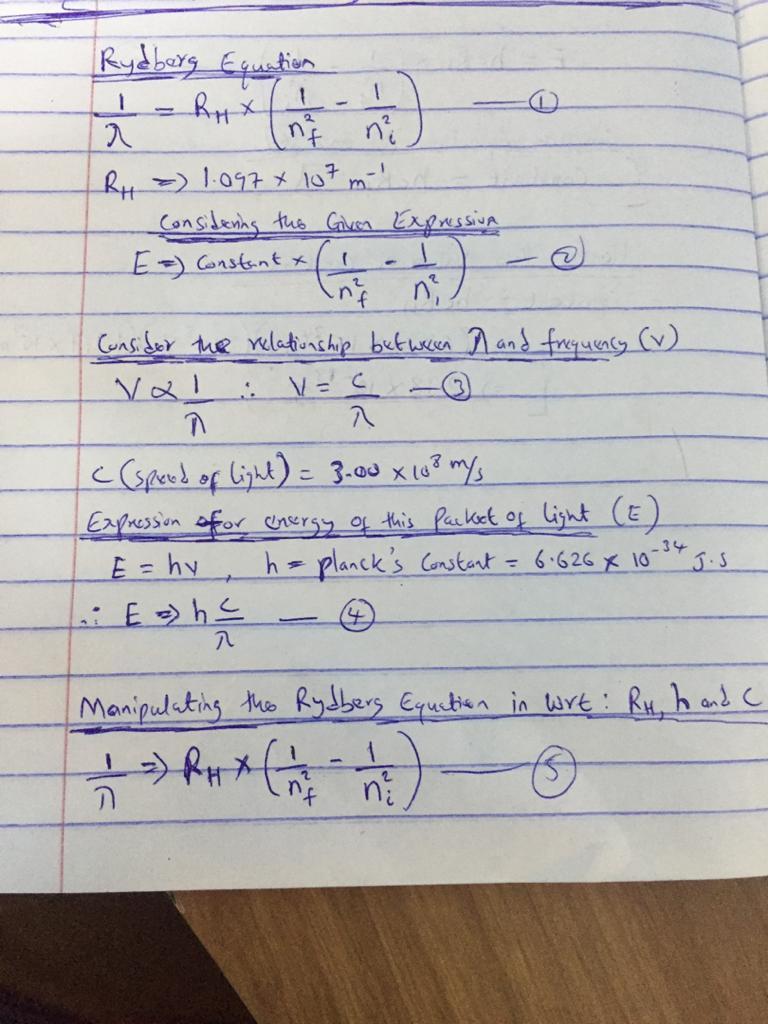 Rydberg Equation
1/λ = R_H × (1/n_f² - 1/n_i²) — ①
R_H => 1.097 × 10⁷ m⁻¹
Considering the Given Expression
E => Constant × (1/n_f² - 1/n_i²) — ②
Consider the relationship between λ and frequency (v)
V ∝ 1/λ ∴ V = c/λ — ③
C (speed of light) = 3.00 × 10⁸ m/s
Expression for energy of this Packet of light (E)
E = hv , h = planck's Constant = 6.626 × 10⁻³⁴ J.S
∴ E => h c/λ — ④
Manipulating the Rydberg Equation in wrt: R_H, h and C
1/λ => R_H × (1/n_f² - 1/n_i²) — ⑤